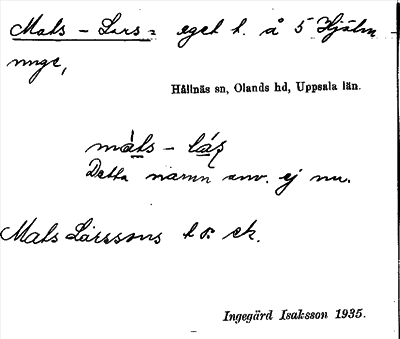 Mats - Lars = eget h. å 5 Hjälm-
unge,
Hållnäs sn, Olands hd, Uppsala län.
màts - lás
Detta namn anv. ej nu.
Mats Larssons ek.
Ingegärd Isaksson 1935.